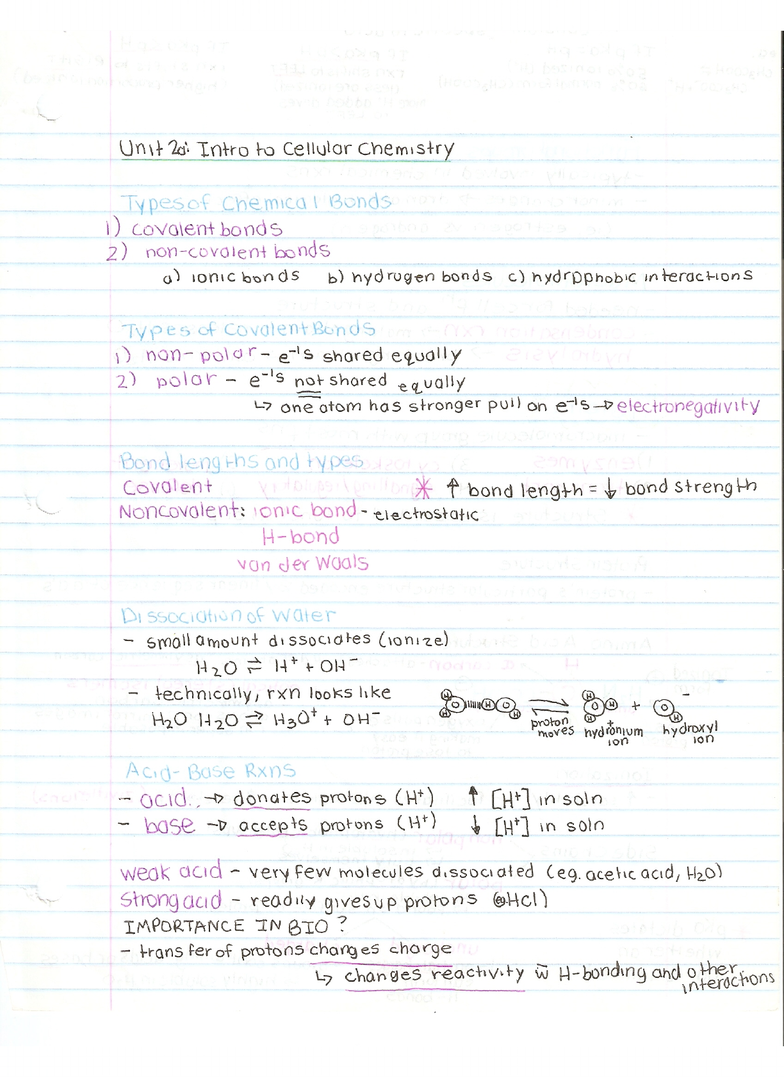 Unit 2a: Intro to Cellular Chemistry
Types of Chemical Bonds
1) covalent bonds
2) non-covalent bonds
a) ionic bonds b) hydrogen bonds c) hydrophobic interactions
Types of Covalent Bonds
1) non-polar - e⁻'s shared equally
2) polar - e⁻'s not shared equally
↳ one atom has stronger pull on e⁻'s → electronegativity
Bond lengths and types
Covalent * ↑ bond length = ↓ bond strength
Noncovalent: ionic bond - electrostatic
H-bond
van der Waals
Dissociation of Water
- small amount dissociates (ionize)
H₂O ⇌ H⁺ + OH⁻
- technically, rxn looks like
H₂O H₂O ⇌ H₃O⁺ + OH⁻
H O H H O H ⇌ H O H H + + O H -
proton moves hydronium ion hydroxyl ion
Acid-Base Rxns
- acid → donates protons (H⁺) ↑ [H⁺] in soln
- base → accepts protons (H⁺) ↓ [H⁺] in soln
weak acid - very few molecules dissociated (eg. acetic acid, H₂O)
Strong acid - readily gives up protons HCl)
IMPORTANCE IN BIO?
- transfer of protons changes charge
↳ changes reactivity w̄ H-bonding and other interactions